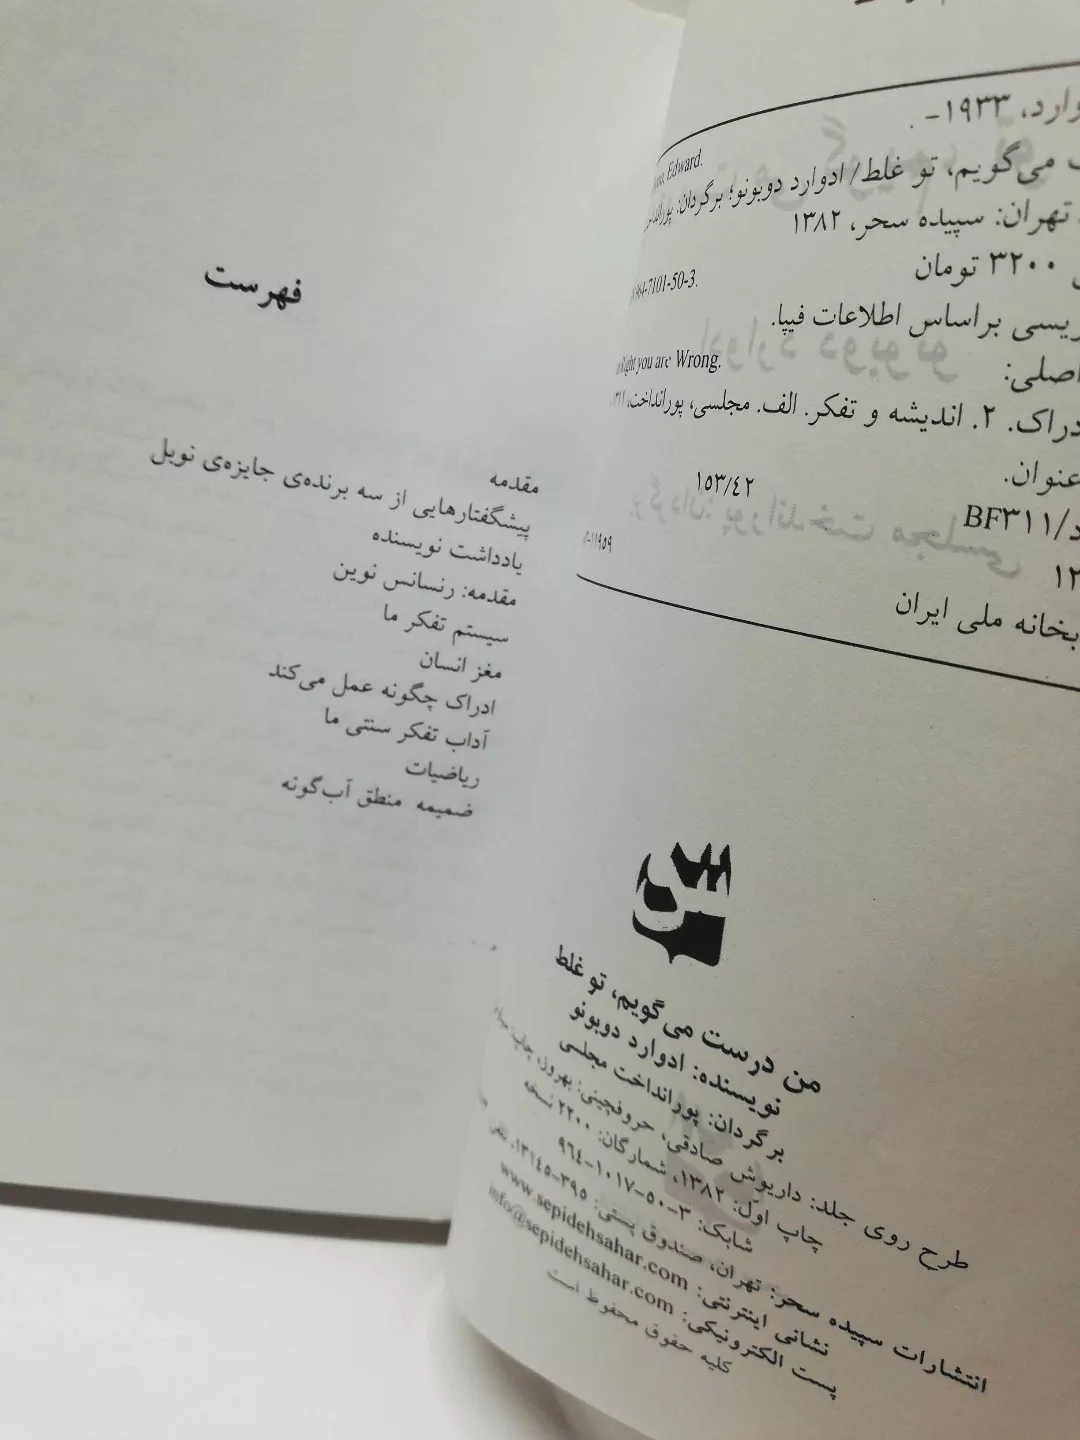 وارد، ۱۹۳۳-
Edward.
می‌گویم، تو غلط/ ادوارد دوبونو؛ برگردان:
تهران: سپیده سحر، ۱۳۸۲
۳۲۰۰ تومان
964-7101-50-3.
براساس اطلاعات فیپا.
اصلی:
Right you are Wrong.
۲. اندیشه و تفکر. الف. مجلسی، پورانداخت،
عنوان.
۱۵۳/۴۲
BF۳۱۱/د
۱۱۹۵۹
ملی ایران
من درست می‌گویم، تو غلط
نویسنده: ادوارد دوبونو
برگردان: پورانداخت مجلسی
طرح روی جلد: داریوش صادقی، حروفچینی: بهروز، چاپ:
چاپ اول: ۱۳۸۲، شمارگان: ۲۲۰۰ نسخه
شابک: ۳-۵۰-۱۰۱۷-۹۶۴
انتشارات سپیده سحر: تهران، صندوق پستی: ۳۹۵-۱۳۱۴۵، تلفن
نشانی اینترنتی: www.sepidehsahar.com
پست الکترونیکی: info@sepidehsahar.com
کلیه حقوق محفوظ است
فهرست
مقدمه
پیشگفتارهایی از سه برنده‌ی جایزه‌ی نوبل
یادداشت نویسنده
مقدمه: رنسانس نوین
سیستم تفکر ما
مغز انسان
ادراک چگونه عمل می‌کند
آداب تفکر سنتی ما
ریاضیات
ضمیمه منطق آب‌گونه